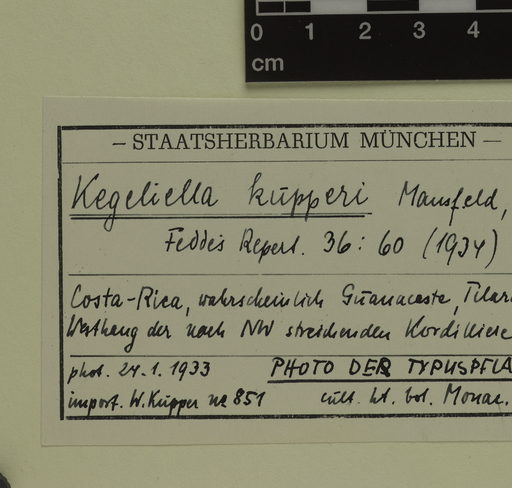 0 1 2 3 4
cm
– STAATSHERBARIUM MÜNCHEN –
Kegeliella kupperi Mansfeld,
Feddes Repert. 36: 60 (1934)
Costa-Rica, wahrscheinlich Guanacaste, Tilar
Westhang der nach NW streichenden Kordilliere
phot. 24.1.1933 PHOTO DER TYPUSPFLA
import. W. Kupper no 851 cult. ht. bot. Monac.